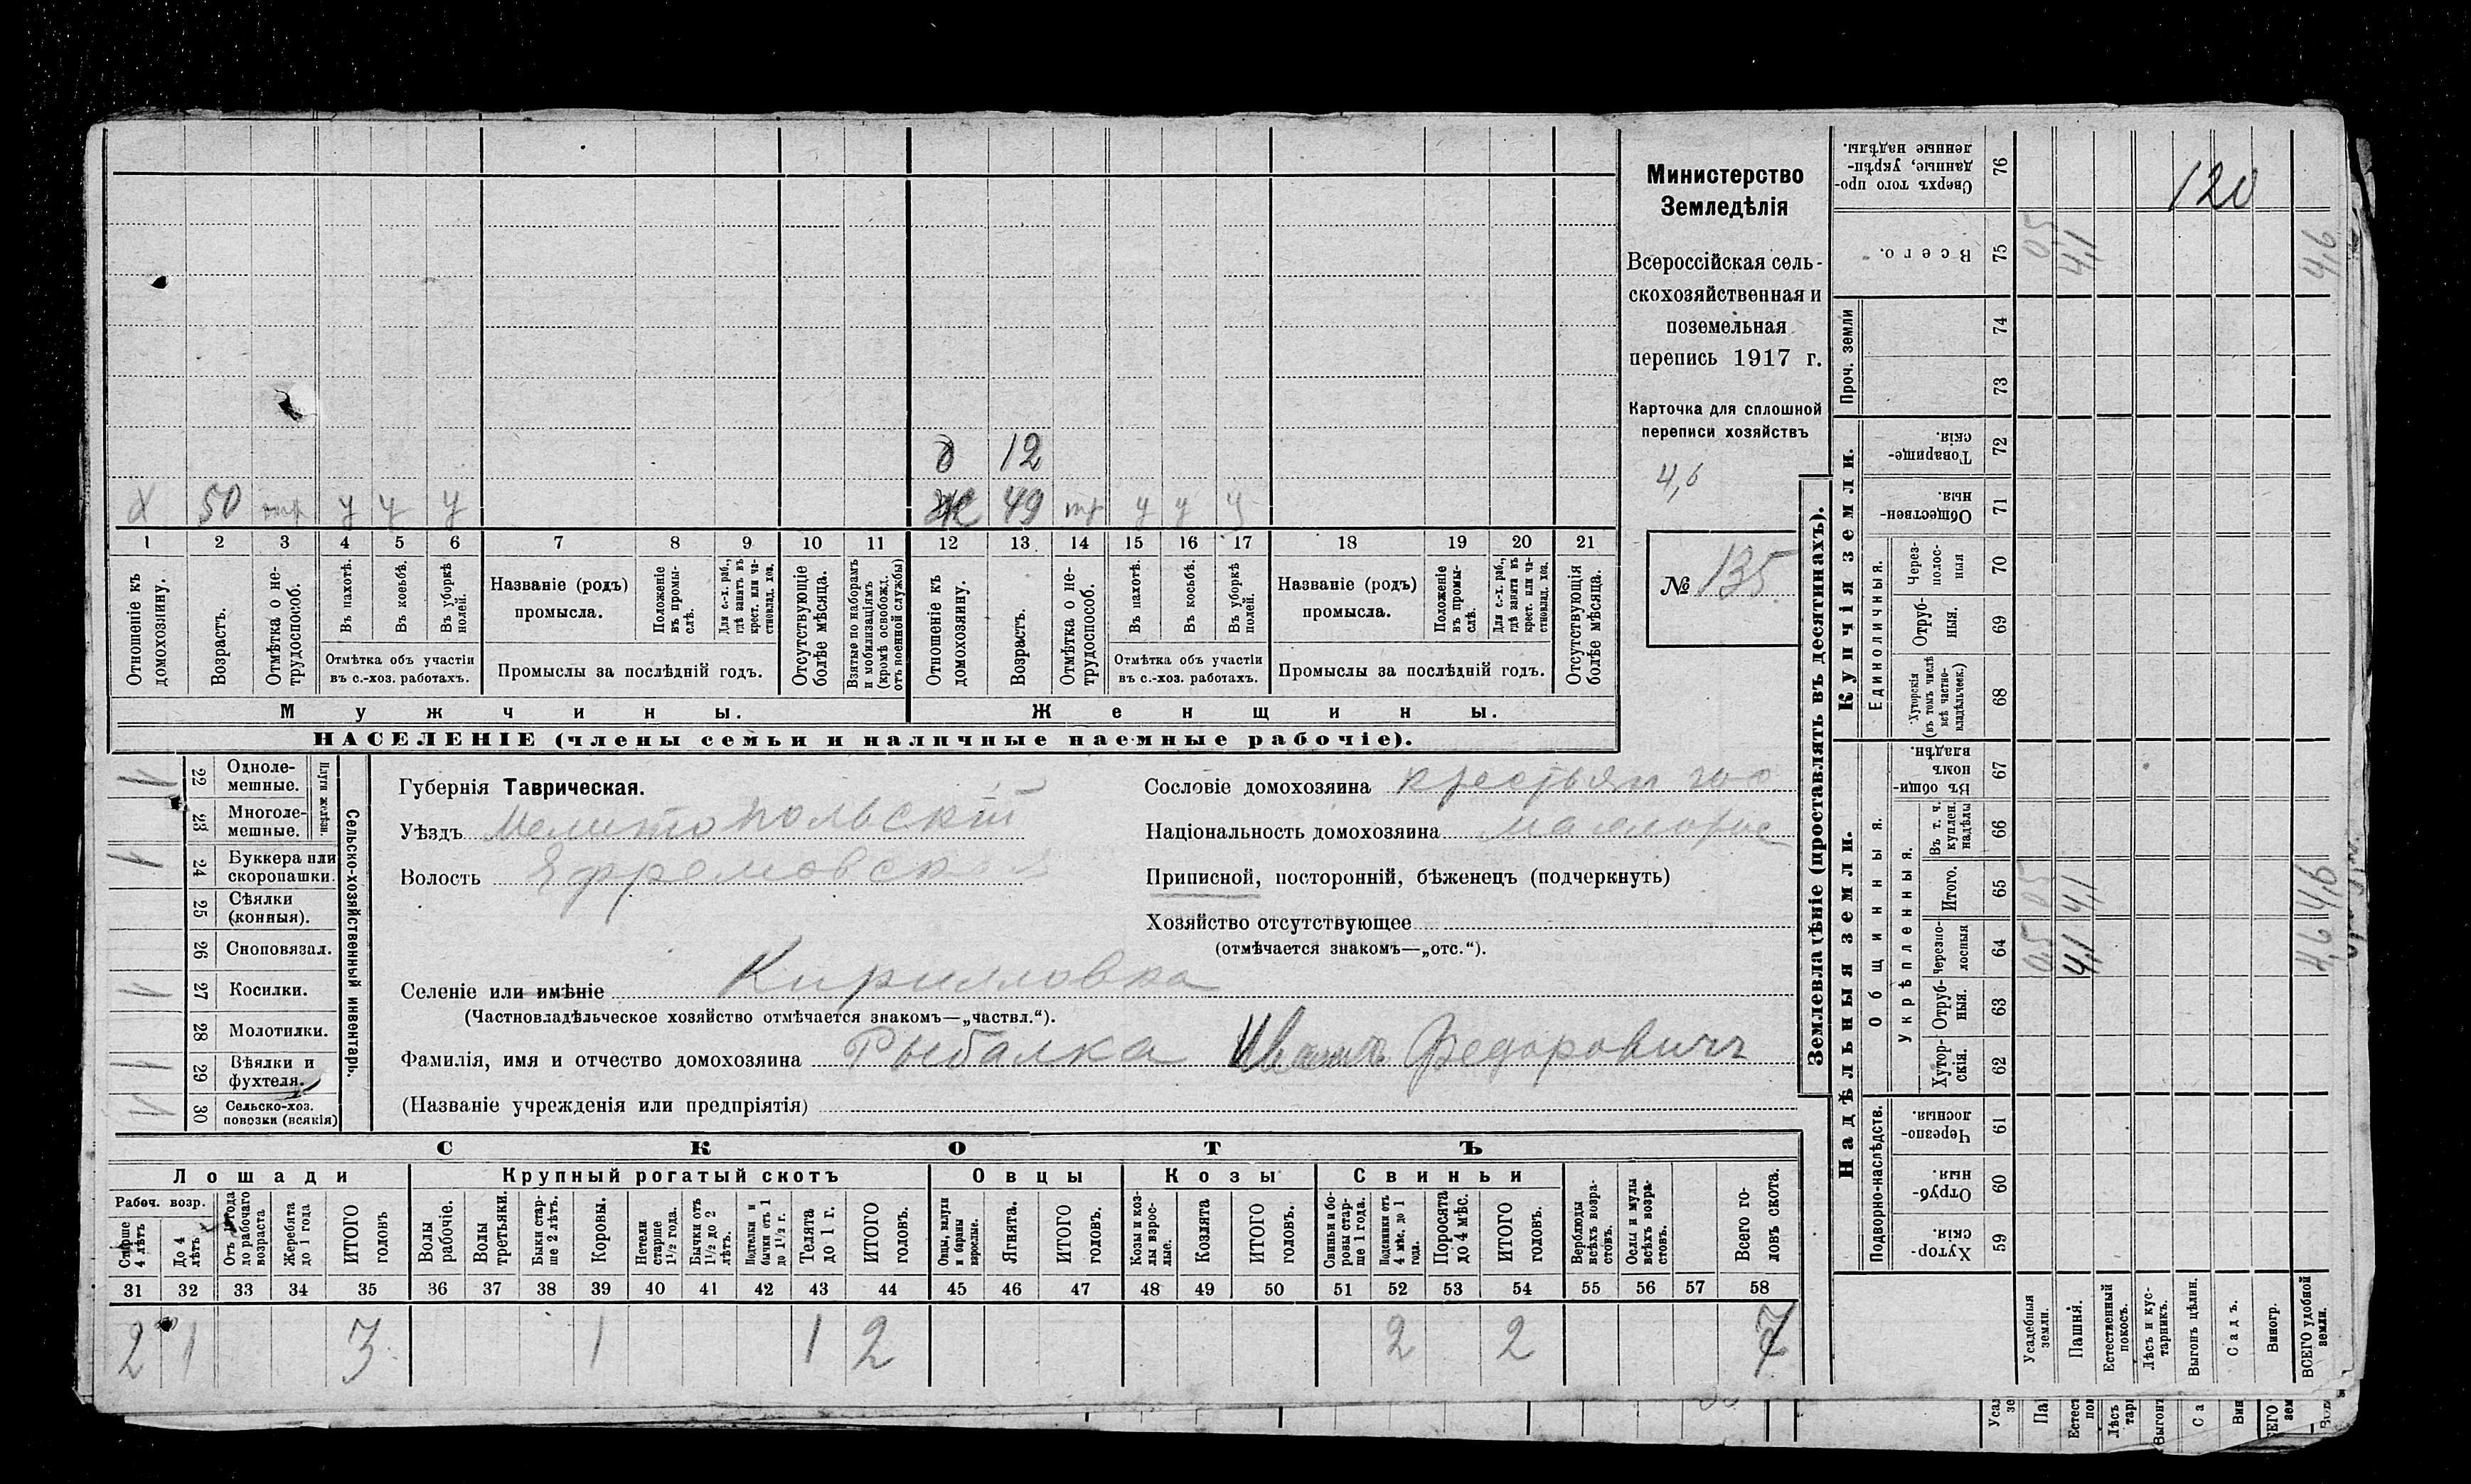 х 50 тр у у у
д 12
Ж 49 тр у у у
1 2 3 4 5 6 7 8 9 10 11 12 13 14 15 16 17 18 19 20 21
Отношеніе къ домохозяину.
Возрастъ.
Отмѣтка о не-
трудоспособ.
Въ пахотѣ.
Въ косьбѣ.
Въ уборкѣ
полей.
Отмѣтка объ участіи
въ с.-хоз. работахъ.
Названіе (родъ)
промысла.
Положеніе
въ промы-
слѣ.
Для с.-х. раб.,
гдѣ занятъ въ
крест. или ча-
стновлад. хоз.
Промыслы за послѣдній годъ.
Отсутствующіе
болѣе мѣсяца.
Взятые по наборамъ
и мобилизаціямъ
(кромѣ освобожд.
отъ военной службы)
Отношеніе къ
домохозяину.
Возрастъ.
Отмѣтка о не-
трудоспособ.
Въ пахотѣ.
Въ косьбѣ.
Въ уборкѣ
полей.
Отмѣтка объ участіи
въ с.-хоз. работахъ.
Названіе (родъ)
промысла.
Положеніе
въ промы-
слѣ.
Для с.-х. раб.,
гдѣ занята въ
крест. или ча-
стновлад. хоз.
Промыслы за послѣдній годъ.
Отсутствующія
болѣе мѣсяца.
Мужчины.
Женщины.
НАСЕЛЕНІЕ (члены семьи и наличные наемные рабочіе).
Министерство
Земледѣлія
Всероссійская сель-
скохозяйственная и
поземельная
перепись 1917 г.
Карточка для сплошной
переписи хозяйствъ
4,6
№ 135
1 22 Одноле-
мешные.
23 Многоле-
мешные.
Плуги желѣзн
1 24 Буккера или
скоропашки.
25 Сѣялки
(конныя).
26 Сноповязал.
1 27 Косилки.
28 Молотилки.
1 29 Вѣялки и
фухтеля.
1 30 Сельско-хоз.
повозки (всякія)
Сельско-хозяйственный инвентарь.
Губернія Таврическая.
Уѣздъ Мелитопольскій
Волость Ефремовская
Селеніе или имѣніе Кирилловка
(Частновладѣльческое хозяйство отмѣчается знакомъ—„частвл.“).
Фамилія, имя и отчество домохозяина Рыбалка Иванъ Федоровичъ
(Названіе учрежденія или предпріятія)
Сословіе домохозяина
Національность домохозяина малорос
Приписной, посторонній, бѣженецъ (подчеркнуть)
Хозяйство отсутствующее
(отмѣчается знакомъ—„отс.“).
СКОТЪ
Лошади
Крупный рогатый скотъ
Овцы
Козы
Свиньи
Рабоч. возр.
Старше
4 лѣтъ
До 4
лѣтъ
Отъ 1 года
до рабочаго
возраста
Жеребята
до 1 года
ИТОГО
головъ
Волы
рабочіе.
Волы
третьяки.
Быки стар-
ше 2 лѣтъ.
Коровы.
Нетели
старше
1½ года.
Бычки отъ
1½ до 2
лѣтъ.
Подтелки и
бычки отъ 1
до 1½ г.
Телята
до 1 г.
ИТОГО
головъ.
Овцы, валухи
и бараны
взрослые.
Ягнята.
ИТОГО
головъ.
Козы и коз-
лы взрос-
лые.
Козлята
ИТОГО
головъ.
Свиньи и бо-
ровы стар-
ше 1 года.
Подсвинки отъ
4 мѣс. до 1
года.
Поросята
до 4 мѣс.
ИТОГО
головъ.
Верблюды
всѣхъ возра-
стовъ.
Ослы и мулы
всѣхъ возра-
стовъ.
Всего го-
ловъ скота.
31 32 33 34 35 36 37 38 39 40 41 42 43 44 45 46 47 48 49 50 51 52 53 54 55 56 57 58
2 1 3 1 1 2 2 2 7
Землевладѣніе (проставлять въ десятинахъ).
Надѣльныя земли.
Купчія земли.
Проч. земли
Подворно-наслѣдств.
Общинныя.
Укрѣпленныя.
Единоличныя.
Сверхъ того про-
данные, укрѣп-
ленные надѣлы.
76
120
Всего.
75 0,5 4,1 4,6
74
73
Товарище-
скія.
72
Обществен-
ныя.
71
Через-
полос-
ныя
70
Отруб-
ныя.
69
Хуторскія
(въ томъ числѣ
всѣ частно-
владѣльческ.)
68
Въ общи-
номъ
владѣн.
67
Въ т. ч.
куплен.
надѣлы
66
Итого.
65 0,5 4,1 4,6
Черезпо-
лосныя
64 0,5 4,1 4,6
Отруб-
ныя.
63
Хутор-
скія.
62
Черезпо-
лосныя.
61
Отруб-
ныя.
60
Хутор-
скія.
59
Усадебныя
земли.
Пашня.
Естественный
покосъ.
Лѣсъ и кус-
тарникъ.
Выгонъ цѣлин.
Садъ.
Виногр.
ВСЕГО удобной
земли.